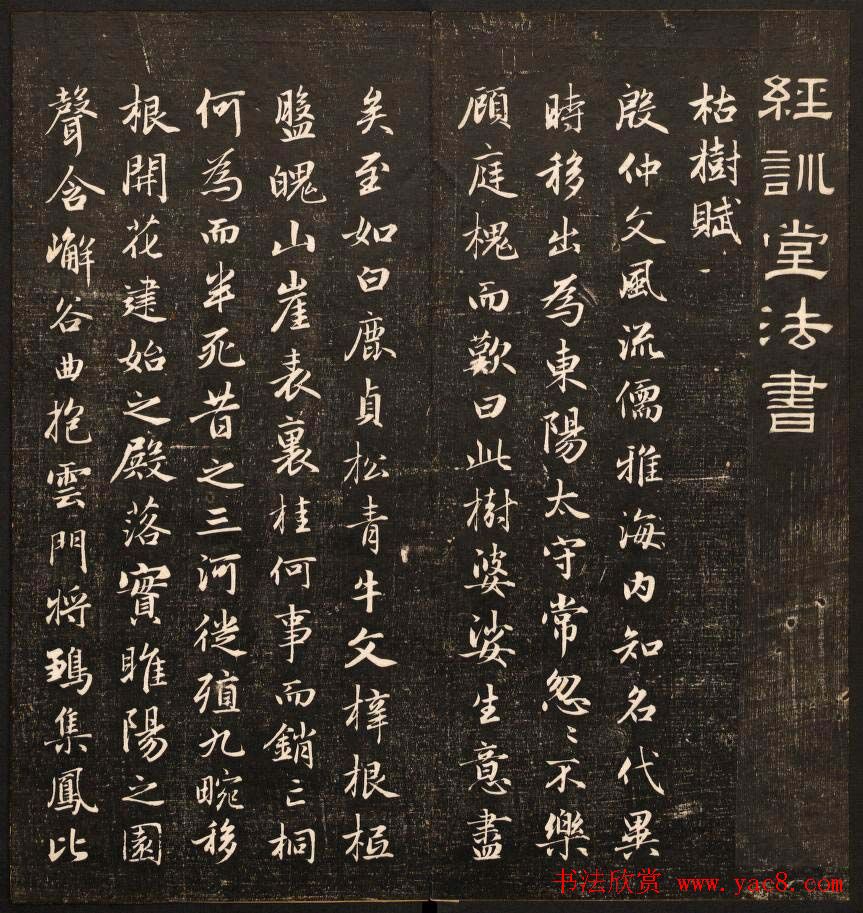 經訓堂法書
枯樹賦
殷仲文風流儒雅海內知名代異
時移出為東陽太守常忽〻不樂
顧庭槐而歎曰此樹婆娑生意盡
矣至如白鹿貞松青牛文梓根柢
盤魄山崖表裏桂何事而銷亡桐
何為而半死昔之三河徙殖九畹移
根開花建始之殿落實睢陽之園
聲含嶰谷曲抱雲門將鶵集鳳比
书法欣赏 www.yac8.com